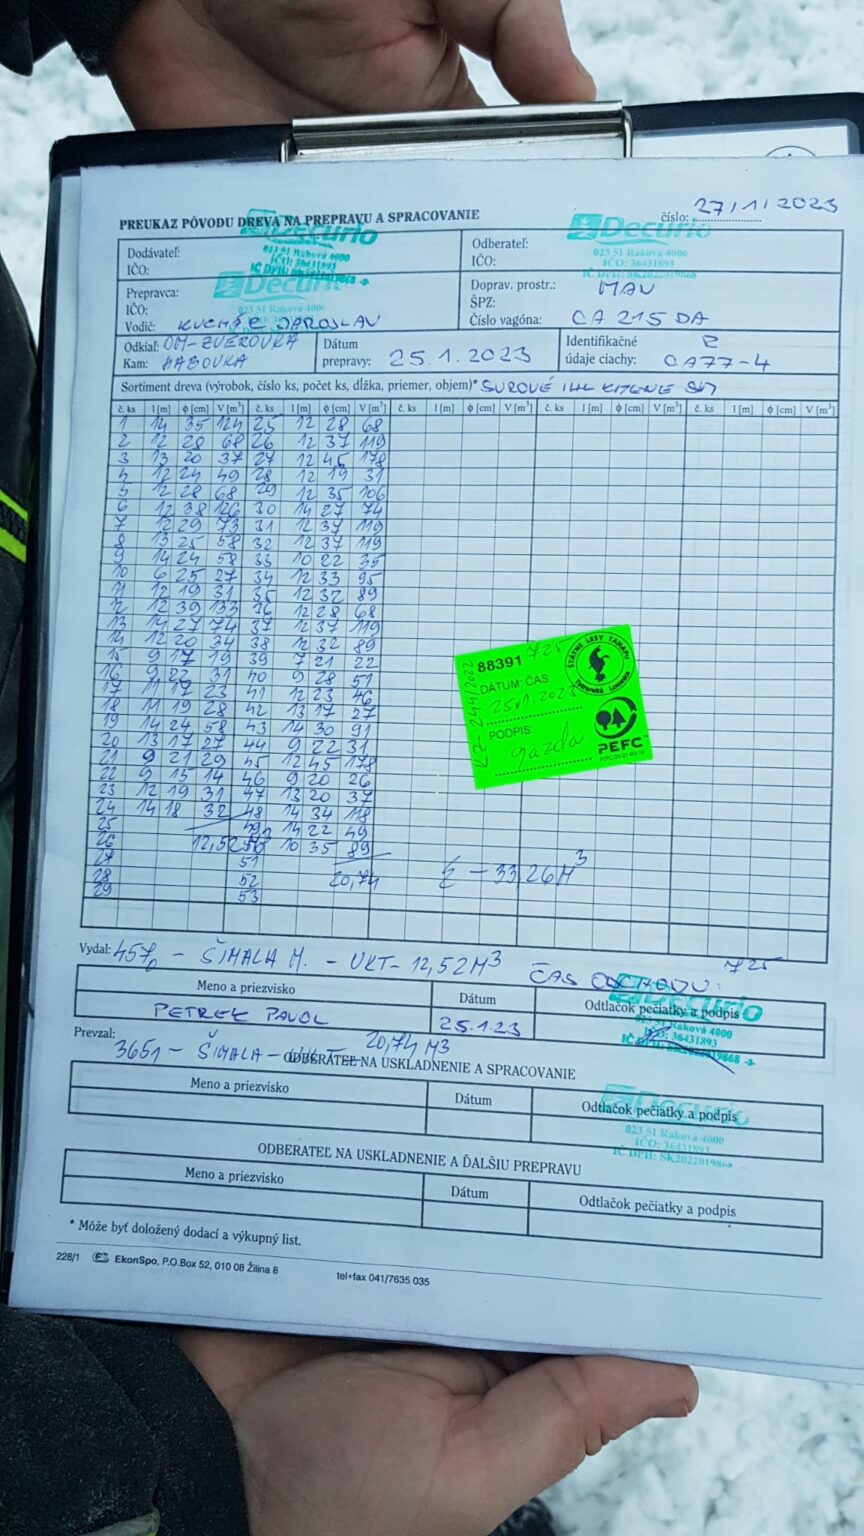 PREUKAZ PÔVODU DREVA NA PREPRAVU A SPRACOVANIE
číslo: 27/1/2023
Decurio
023 51 Raková 4000
IČO: 36431893
IČ DPH: SK2022019868
Decurio
023 51 Raková 4000
IČO: 36431893
IČ DPH: SK2022019868
Dodávateľ:
IČO:
Odberateľ:
IČO:
Decurio
023 51 Raková 4000
Prepravca:
IČO:
Vodič: KUCHÁR JAROSLAV
Doprav. prostr.: MAN
ŠPZ:
Číslo vagóna: CA 215 DA
Odkiaľ: OM-ZVEROVKA
Kam: HABOVKA
Dátum
prepravy: 25.1.2023
Identifikačné
údaje ciachy: CA77-4
Sortiment dreva (výrobok, číslo ks, počet ks, dĺžka, priemer, objem)* SUROVÉ IHL
č. ks l [m] ϕ [cm] V [m³] č. ks l [m] ϕ [cm] V [m³] č. ks l [m] ϕ [cm] V [m³] č. ks l [m] ϕ [cm] V [m³] č. ks l [m] ϕ [cm] V [m³]
1 14 35 124 25 12 28 68
2 12 28 68 26 12 37 119
3 13 20 37 27 12 45 178
4 12 24 49 28 12 19 31
5 12 28 68 29 12 35 106
6 12 38 126 30 14 27 74
7 12 29 73 31 12 37 119
8 13 25 58 32 12 37 119
9 14 24 58 33 10 22 35
10 6 25 27 34 12 33 95
11 12 19 31 35 12 32 89
12 12 39 133 36 12 28 68
13 14 27 74 37 12 37 119
14 12 20 34 38 12 32 89
15 9 17 19 39 7 21 22
16 9 22 31 40 9 28 51
17 11 17 23 41 12 23 46
18 11 19 28 42 13 17 27
19 14 24 58 43 14 30 91
20 13 17 27 44 9 22 31
21 9 21 29 45 12 45 178
22 9 15 14 46 9 20 26
23 12 19 31 47 13 20 37
24 14 18 32 48 14 34 118
25 49 14 22 49
26 12,52 50 10 35 89
27 51
28 52 20,74
29 53
Σ - 33,26 M³
88391 725
ŠTÁTNE LESY TANAPU
Tatranská Lomnica
DÁTUM ČAS
25.1.2023
PODPIS
gazda
PEFC
Vydal: 457 - ŠIMALA M. - VKT - 12,52 M³
ČAS ODCHODU: 725
Meno a priezvisko
Dátum
Odtlačok pečiatky a podpis
PETREK PAVOL
25.1.23
Decurio
023 51 Raková 4000
IČO: 36431893
IČ DPH: SK2022019868
Prevzal: 3651 - ŠIMALA - 20,74 M3
ODBERATEĽ NA USKLADNENIE A SPRACOVANIE
Meno a priezvisko
Dátum
Odtlačok pečiatky a podpis
Decurio
023 51 Raková 4000
IČO: 36431893
IČ DPH: SK2022019868
ODBERATEĽ NA USKLADNENIE A ĎALŠIU PREPRAVU
Meno a priezvisko
Dátum
Odtlačok pečiatky a podpis
* Môže byť doložený dodací a výkupný list.
228/1 EkonSpo, P.O.Box 52, 010 08 Žilina 8
tel+fax 041/7635 035